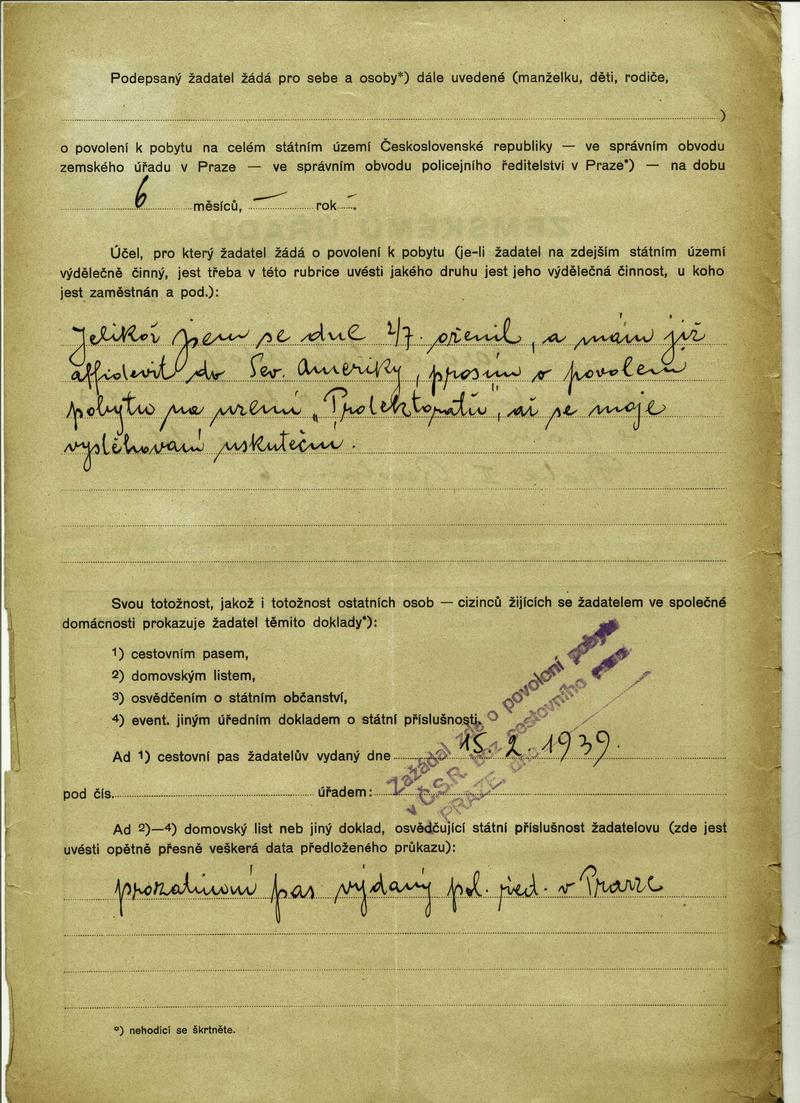 Podepsaný žadatel žádá pro sebe a osoby*) dále uvedené (manželku, děti, rodiče,
)
o povolení k pobytu na celém státním území Československé republiky — ve správním obvodu
zemského úřadu v Praze — ve správním obvodu policejního ředitelství v Praze*) — na dobu
6 měsíců, — rok —.
Účel, pro který žadatel žádá o povolení k pobytu (je-li žadatel na zdejším státním území
výdělečně činný, jest třeba v této rubrice uvésti jakého druhu jest jeho výdělečná činnost, u koho
jest zaměstnán a pod.):
Jelikož jsem se dne 2/7. oženil, a mám již
affidevit do Sev. Ameriky, prosím o povolení
pobytu na území „Protektorátu", až se moje
vystěhování uskuteční.
Svou totožnost, jakož i totožnost ostatních osob — cizinců žijících se žadatelem ve společné
domácnosti prokazuje žadatel těmito doklady*):
1) cestovním pasem,
2) domovským listem,
3) osvědčením o státním občanství,
4) event. jiným úředním dokladem o státní příslušnosti.
Ad 1) cestovní pas žadatelův vydaný dne 15. 2. 1939.
pod čís. úřadem:
Zažádal zde o povolení pobytu
v Č.S.R. bez cestovního pasu
PRAZE, dne
Ad 2)—4) domovský list neb jiný doklad, osvědčující státní příslušnost žadatelovu (zde jest
uvésti opětně přesně veškerá data předloženého průkazu):
prozatímní pas výdaný pol. řed. v Praze
*) nehodící se škrtněte.